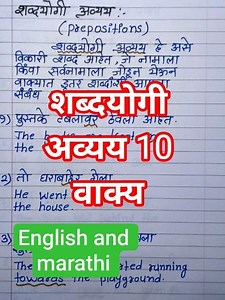 शब्दयोगी अव्यय :-
(prepositions)
शब्दयोगी अव्यय हे असे
विकारी शब्द आहेत, जे नामाला
किंवा सर्वनामाला जोडून येऊन
वाक्यात इतर शब्दांशी
संबंध
शब्दयोगी
अव्यय 10
वाक्य
1) पुस्तके टेबलावर ठेवली आहेत.
The
the
2) तो घराबाहेर गेला
He went
the house.
English and
marathi
3)
The running
towards the playground.